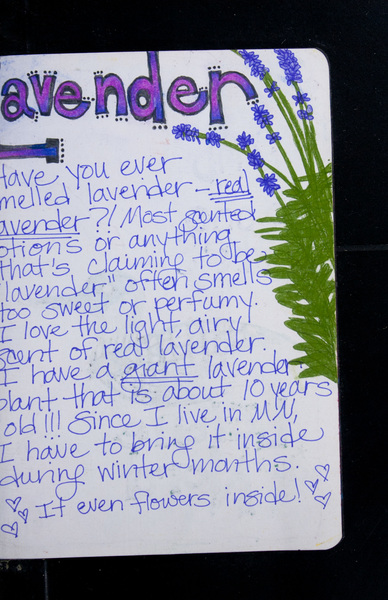 avender
Have you ever
melled lavender - real
avender?! Most scented
otions or anything
that's claiming to be
"lavender" often smells
too sweet or perfumy.
I love the light, airy
scent of real lavender.
I have a giant lavender
plant that is about 10 years
old!!! Since I live in MN,
I have to bring it inside
during winter months.
It even flowers inside!